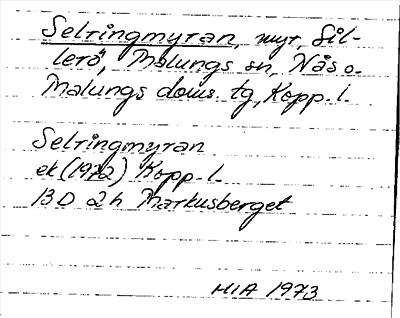 Selringmyran, myr, Sil-
lerö, Malungs sn, Nås o.
Malungs doms. tg, Kopp. l.
Selringmyran
ek (1972) Kopp. l.
13D 2h Markusberget
MIA 1973